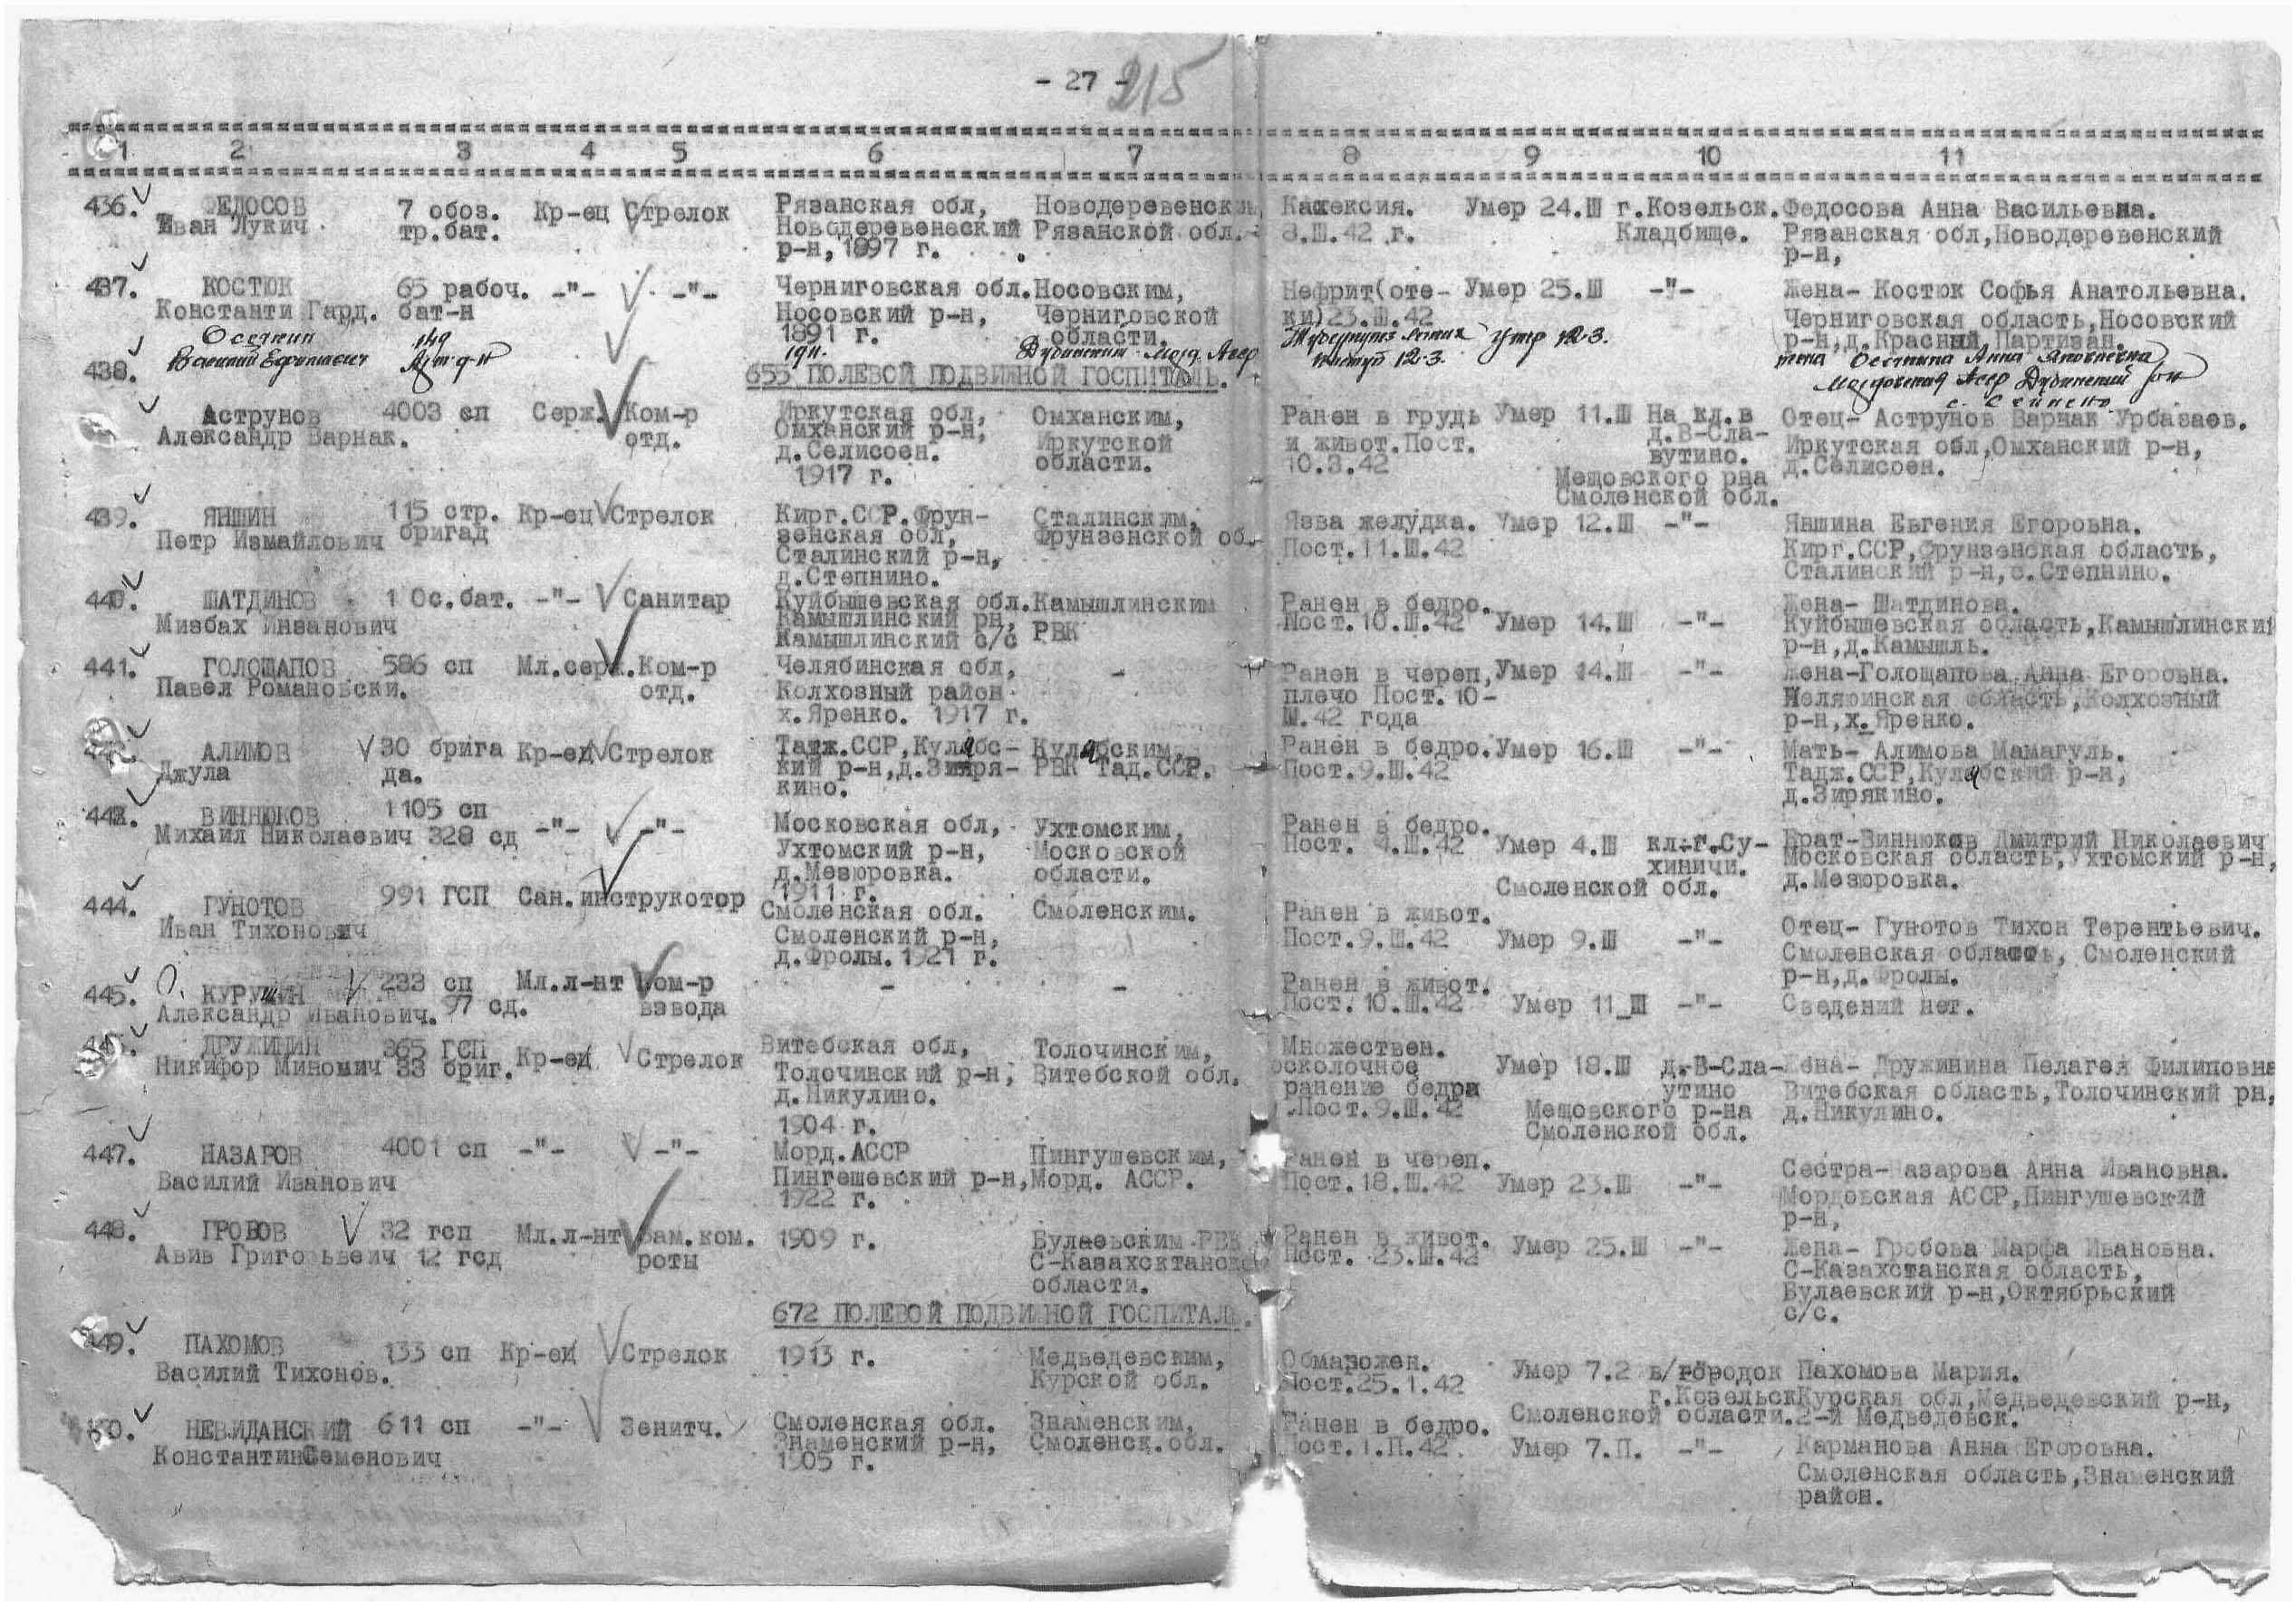 - 27 - 215
1 2 3 4 5 6 7 8 9 10 11
436. ФЕДОСОВ 7 обоз. Кр-ец Стрелок Рязанская обл, Новодеревенским, Кахексия. Умер 24.Ш г.Козельск. Федосова Анна Васильевна.
Иван Лукич. тр.бат. Новодеревенский Рязанской обл. 8.Ш.42 г. Кладбище. Рязанская обл,Новодеревенский
р-н,1897 г. р-н,
437. КОСТЮК 65 рабоч. -"- -"- Черниговская обл. Носовским, Нефрит(оте- Умер 25.Ш -"- Жена- Костюк Софья Анатольевна.
Константи Гард. бат-н Носовский р-н, Черниговской ки)23.Ш.42 Черниговская область,Носовский
1891 г. области. р-н,д.Красный Партизан.
Осеткин 149 1911. Дубинским Морд. Асср Умер 12.3. жена Анна Яковлевна
438. Василий Арт д-н 12.3. Мордовская Асср Дубинский
655 ПОЛЕВОЙ ПОДВИЖНОЙ ГОСПИТАЛЬ.
Аструнов 4003 сп Серж. Ком-р Иркутская обл, Омханским, Ранен в грудь Умер 11.Ш На кл.в Отец- Аструнов Варнак Урбазаев.
Александр Варнак. отд. Омханский р-н, Иркутской и живот.Пост. д.В-Сла- Иркутская обл,Омханский р-н,
д.Селисоен. области. 10.3.42 вутино. д.Селисоен.
1917 г. Мещовского рна
Смоленской обл.
439. ЯНШИН 115 стр. Кр-ец Стрелок Кирг.ССР.Фрун- Сталинским, Язва желудка. Умер 12.Ш -"- Яншина Евгения Егоровна.
Петр Измайлович бригад зенская обл, Фрунзенской об. Пост.11.Ш.42 Кирг.ССР,Фрунзенская область,
Сталинский р-н, Сталинский р-н,с.Степнино.
д.Степнино.
440. ШАТДИНОВ 1 Ос.бат. -"- Санитар Куйбышевская обл. Камышлинским Ранен в бедро. Жена- Шатдинова.
Мизбах Инзанович Камышлинский рн, РВК Пост.10.Ш.42 Умер 14.Ш -"- Куйбышевская область,Камышлинский
Камышлинский с/с р-н,д.Камышль.
441. ГОЛОЩАПОВ 586 сп Мл.серж. Ком-р Челябинская обл, - Ранен в череп, Умер 14.Ш -"- Жена-Голощапова Анна Егоровна.
Павел Романовски. отд. Колхозный район плечо Пост.10- Челябинская область,Колхозный
х.Яренко. 1917 г. Ш.42 года р-н,х.Яренко.
АЛИМОВ 30 брига Кр-ец Стрелок Тадж.ССР,Кулябс- Кулябским Ранен в бедро. Умер 16.Ш -"- Мать- Алимова Мамагуль.
Джула да. кий р-н,д.Зиря- РВК Тад.ССР. Пост.9.Ш.42 Тадж.ССР,Кулябский р-н,
кино. д.Зирякино.
443. ВИННЮКОВ 1105 сп -"- -"- Московская обл, Ухтомским, Ранен в бедро. Умер 4.Ш кл.г.Су- Брат-Виннюков Дмитрий Николаевич
Михаил Николаевич 328 сд Ухтомский р-н, Московской Пост. 4.Ш.42 хиничи. Московская область,Ухтомский р-н,
д.Мезюровка. области. Смоленской обл. д.Мезюровка.
1911 г.
444. ГУНОТОВ 991 ГСП Сан.инструкотор Смоленская обл. Смоленским. Ранен в живот. Отец- Гунотов Тихон Терентьевич.
Иван Тихонович Смоленский р-н, Пост.9.Ш.42 Умер 9.Ш -"- Смоленская область, Смоленский
д.Фролы.1921 г. р-н,д.Фролы.
445. КУРУШИН 233 сп Мл.л-нт Ком-р - - Ранен в живот. Сведений нет.
Александр Иванович. 97 сд. взвода Пост.10.Ш.42 Умер 11_Ш -"-
ДРУЖИНИН 365 ГСП Кр-ец Стрелок Витебская обл, Толочинским, Множествен. Умер 18.Ш д.В-Сла- Жена- Дружинина Пелагея Филиповна
Никифор Миномич 33 бриг. Толочинский р-н, Витебской обл. осколочное утино Витебская область,Толочинский рн,
д.Никулино. ранение бедра Мещовского р-на д.Никулино.
1904 г. .Пост.9.Ш.42 Смоленской обл.
447. НАЗАРОВ 4001 сп -"- -"- Морд.АССР Пингушевским, Ранен в череп. Сестра-Назарова Анна Ивановна.
Василий Иванович Пингешевский р-н, Морд. АССР. Пост.18.Ш.42 Умер 23.Ш -"- Мордовская АССР,Пингушевский
1922 г. р-н,
448. ГРОБОВ 32 гсп Мл.л-нт Зам.ком. 1909 г. Булаевским РВК Ранен в живот. Умер 25.Ш -"- Жена- Гробова Марфа Ивановна.
Авив Григорьвеич 12 гсд роты С-Казахсктанской Пост. 23.Ш.42 С-Казахстанская область,
области. Булаевский р-н,Октябрьский
с/с.
672 ПОЛЕВОЙ ПОДВИЖНОЙ ГОСПИТАЛЬ.
449. ПАХОМОВ 133 сп Кр-ец Стрелок 1913 г. Медведевским, Обмарожен. Умер 7.2 в/городок Пахомова Мария.
Василий Тихонов. Курской обл. Пост.25.1.42 г.Козельск Курская обл,Медведевский р-н,
Смоленской области. 2-й Медведевск.
450. НЕВИДАНСКИЙ 611 сп -"- Зенитч. Смоленская обл. Знаменским, Ранен в бедро. Умер 7.П. -"- Карманова Анна Егоровна.
Константин Семенович Знаменский р-н, Смоленск.обл. Пост.1.П.42. Смоленская область,Знаменский
1905 г. район.